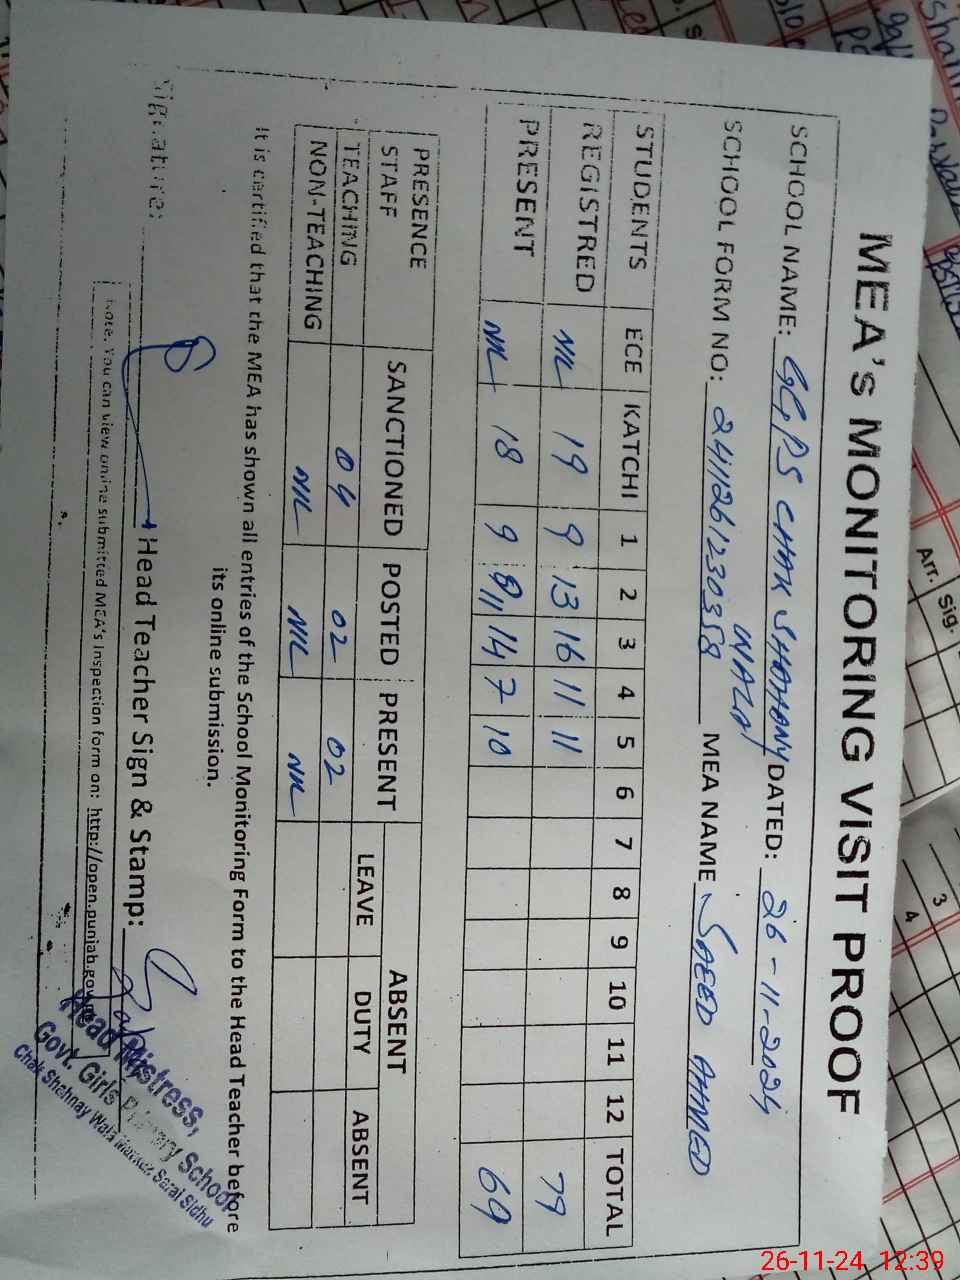 MEA's MONITORING VISIT PROOF
SCHOOL NAME: GGPS CHAK SHAHANY WALA DATED: 26-11-2024
SCHOOL FORM NO: 2411261230358 MEA NAME SAEED AHMED
STUDENTS ECE KATCHI 1 2 3 4 5 6 7 8 9 10 11 12 TOTAL
REGISTRED NIL 19 9 13 16 11 11 79
PRESENT NIL 18 9 11 14 7 10 69
PRESENCE STAFF SANCTIONED POSTED PRESENT ABSENT
LEAVE DUTY ABSENT
TEACHING 04 02 02
NON-TEACHING NIL NIL NIL
It is certified that the MEA has shown all entries of the School Monitoring Form to the Head Teacher before
its online submission.
Signature: Head Teacher Sign & Stamp:
Note: You can view online submitted MEA's Inspection form on: http://open.punjab.gov
Head Mistress,
Govt. Girls Primary School,
Chak Shahnay Wala Markaz Sarai Sidhu
Arr. Sig.
3
4
26-11-24 12:39